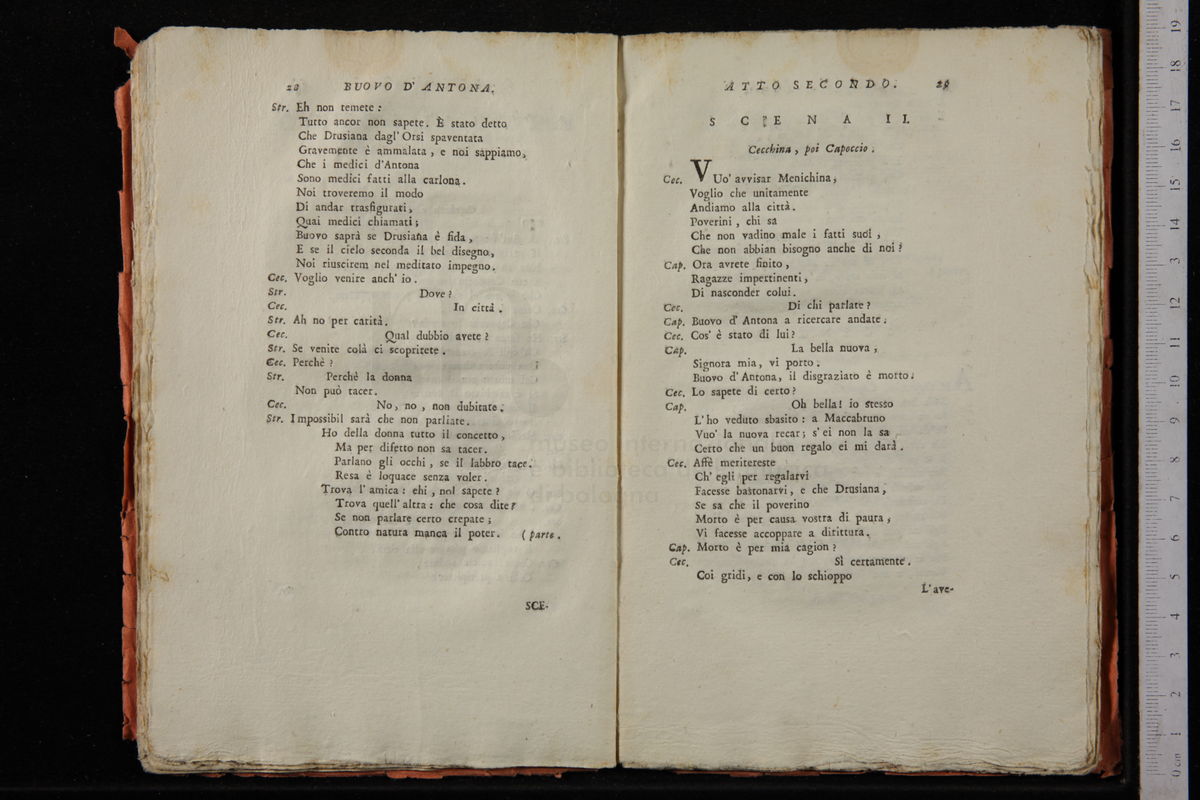 28 BUOVO D' ANTONA.
Str. Eh non temete:
Tutto ancor non sapete. È stato detto
Che Drusiana dagl' Orsi spaventata
Gravemente è ammalata, e noi sappiamo,
Che i medici d'Antona
Sono medici fatti alla carlona.
Noi troveremo il modo
Di andar trasfigurati,
Quai medici chiamati;
Buovo saprà se Drusiana è fida,
E se il cielo seconda il bel disegno,
Noi riuscirem nel meditato impegno.
Cec. Voglio venire anch' io.
Str. Dove?
Cec. In città.
Str. Ah no per carità.
Cec. Qual dubbio avete?
Str. Se venite colà ci scoprirete.
Cec. Perchè?
Str. Perchè la donna
Non può tacer.
Cec. No, no, non dubitate.
Str. Impossibil sarà che non parliate.
Ho della donna tutto il concetto,
Ma per difetto non sa tacer.
Parlano gli occhi, se il labbro tace.
Resa è loquace senza voler.
Trova l' amica: ehi, nol sapete?
Trova quell' altra: che cosa dite?
Se non parlare certo crepate;
Contro natura manca il poter. (parte.
SCE-
ATTO SECONDO. 29
SCENA II.
Cecchina, poi Capoccio.
Cec. VUo' avvisar Menichina,
Voglio che unitamente
Andiamo alla città.
Poverini, chi sa
Che non vadino male i fatti suoi,
Che non abbian bisogno anche di noi?
Cap. Ora avrete finito,
Ragazze impertinenti,
Di nasconder colui.
Cec. Di chi parlate?
Cap. Buovo d' Antona a ricercare andate.
Cec. Cos' è stato di lui?
Cap. La bella nuova,
Signora mia, vi porto.
Buovo d' Antona, il disgraziato è morto.
Cec. Lo sapete di certo?
Cap. Oh bella! io stesso
L' ho veduto sbasito: a Maccabruno
Vuo' la nuova recar; s' ei non la sa
Certo che un buon regalo ei mi darà.
Cec. Affè meritereste
Ch' egli per regalarvi
Facesse bastonarvi, e che Drusiana,
Se sa che il poverino
Morto è per causa vostra di paura,
Vi facesse accoppare a dirittura.
Cap. Morto è per mia cagion?
Cec. Sì certamente.
Coi gridi, e con lo schioppo
L'ave-
museo intern
e biblioteca
di bologna